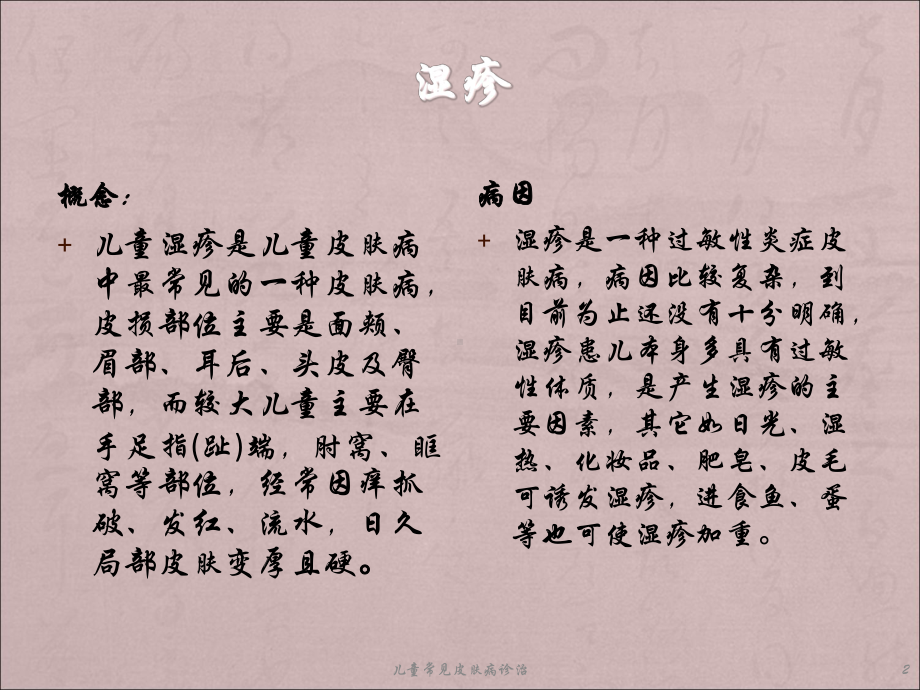 湿疹
概念：
+ 儿童湿疹是儿童皮肤病
中最常见的一种皮肤病，
皮损部位主要是面颊、
眉部、耳后、头皮及臀
部，而较大儿童主要在
手足指(趾)端，肘窝、眶
窝等部位，经常因痒抓
破、发红、流水，日久
局部皮肤变厚且硬。
病因
+ 湿疹是一种过敏性炎症皮
肤病，病因比较复杂，到
目前为止还没有十分明确，
湿疹患儿本身多具有过敏
性体质，是产生湿疹的主
要因素，其它如日光、湿
热、化妆品、肥皂、皮毛
可诱发湿疹，进食鱼、蛋
等也可使湿疹加重。
儿童常见皮肤病诊治
2